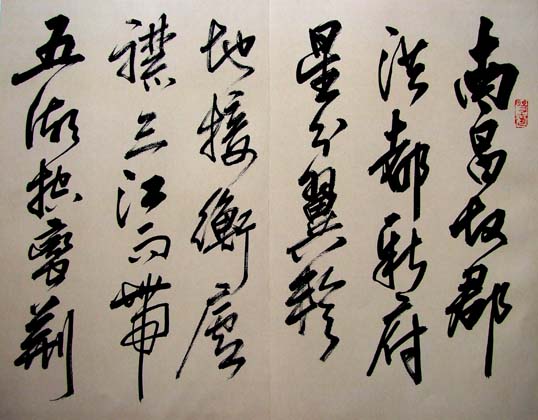 南昌故郡
洪都新府
星分翼軫
地接衡廬
襟三江而帶
五湖控蠻荊